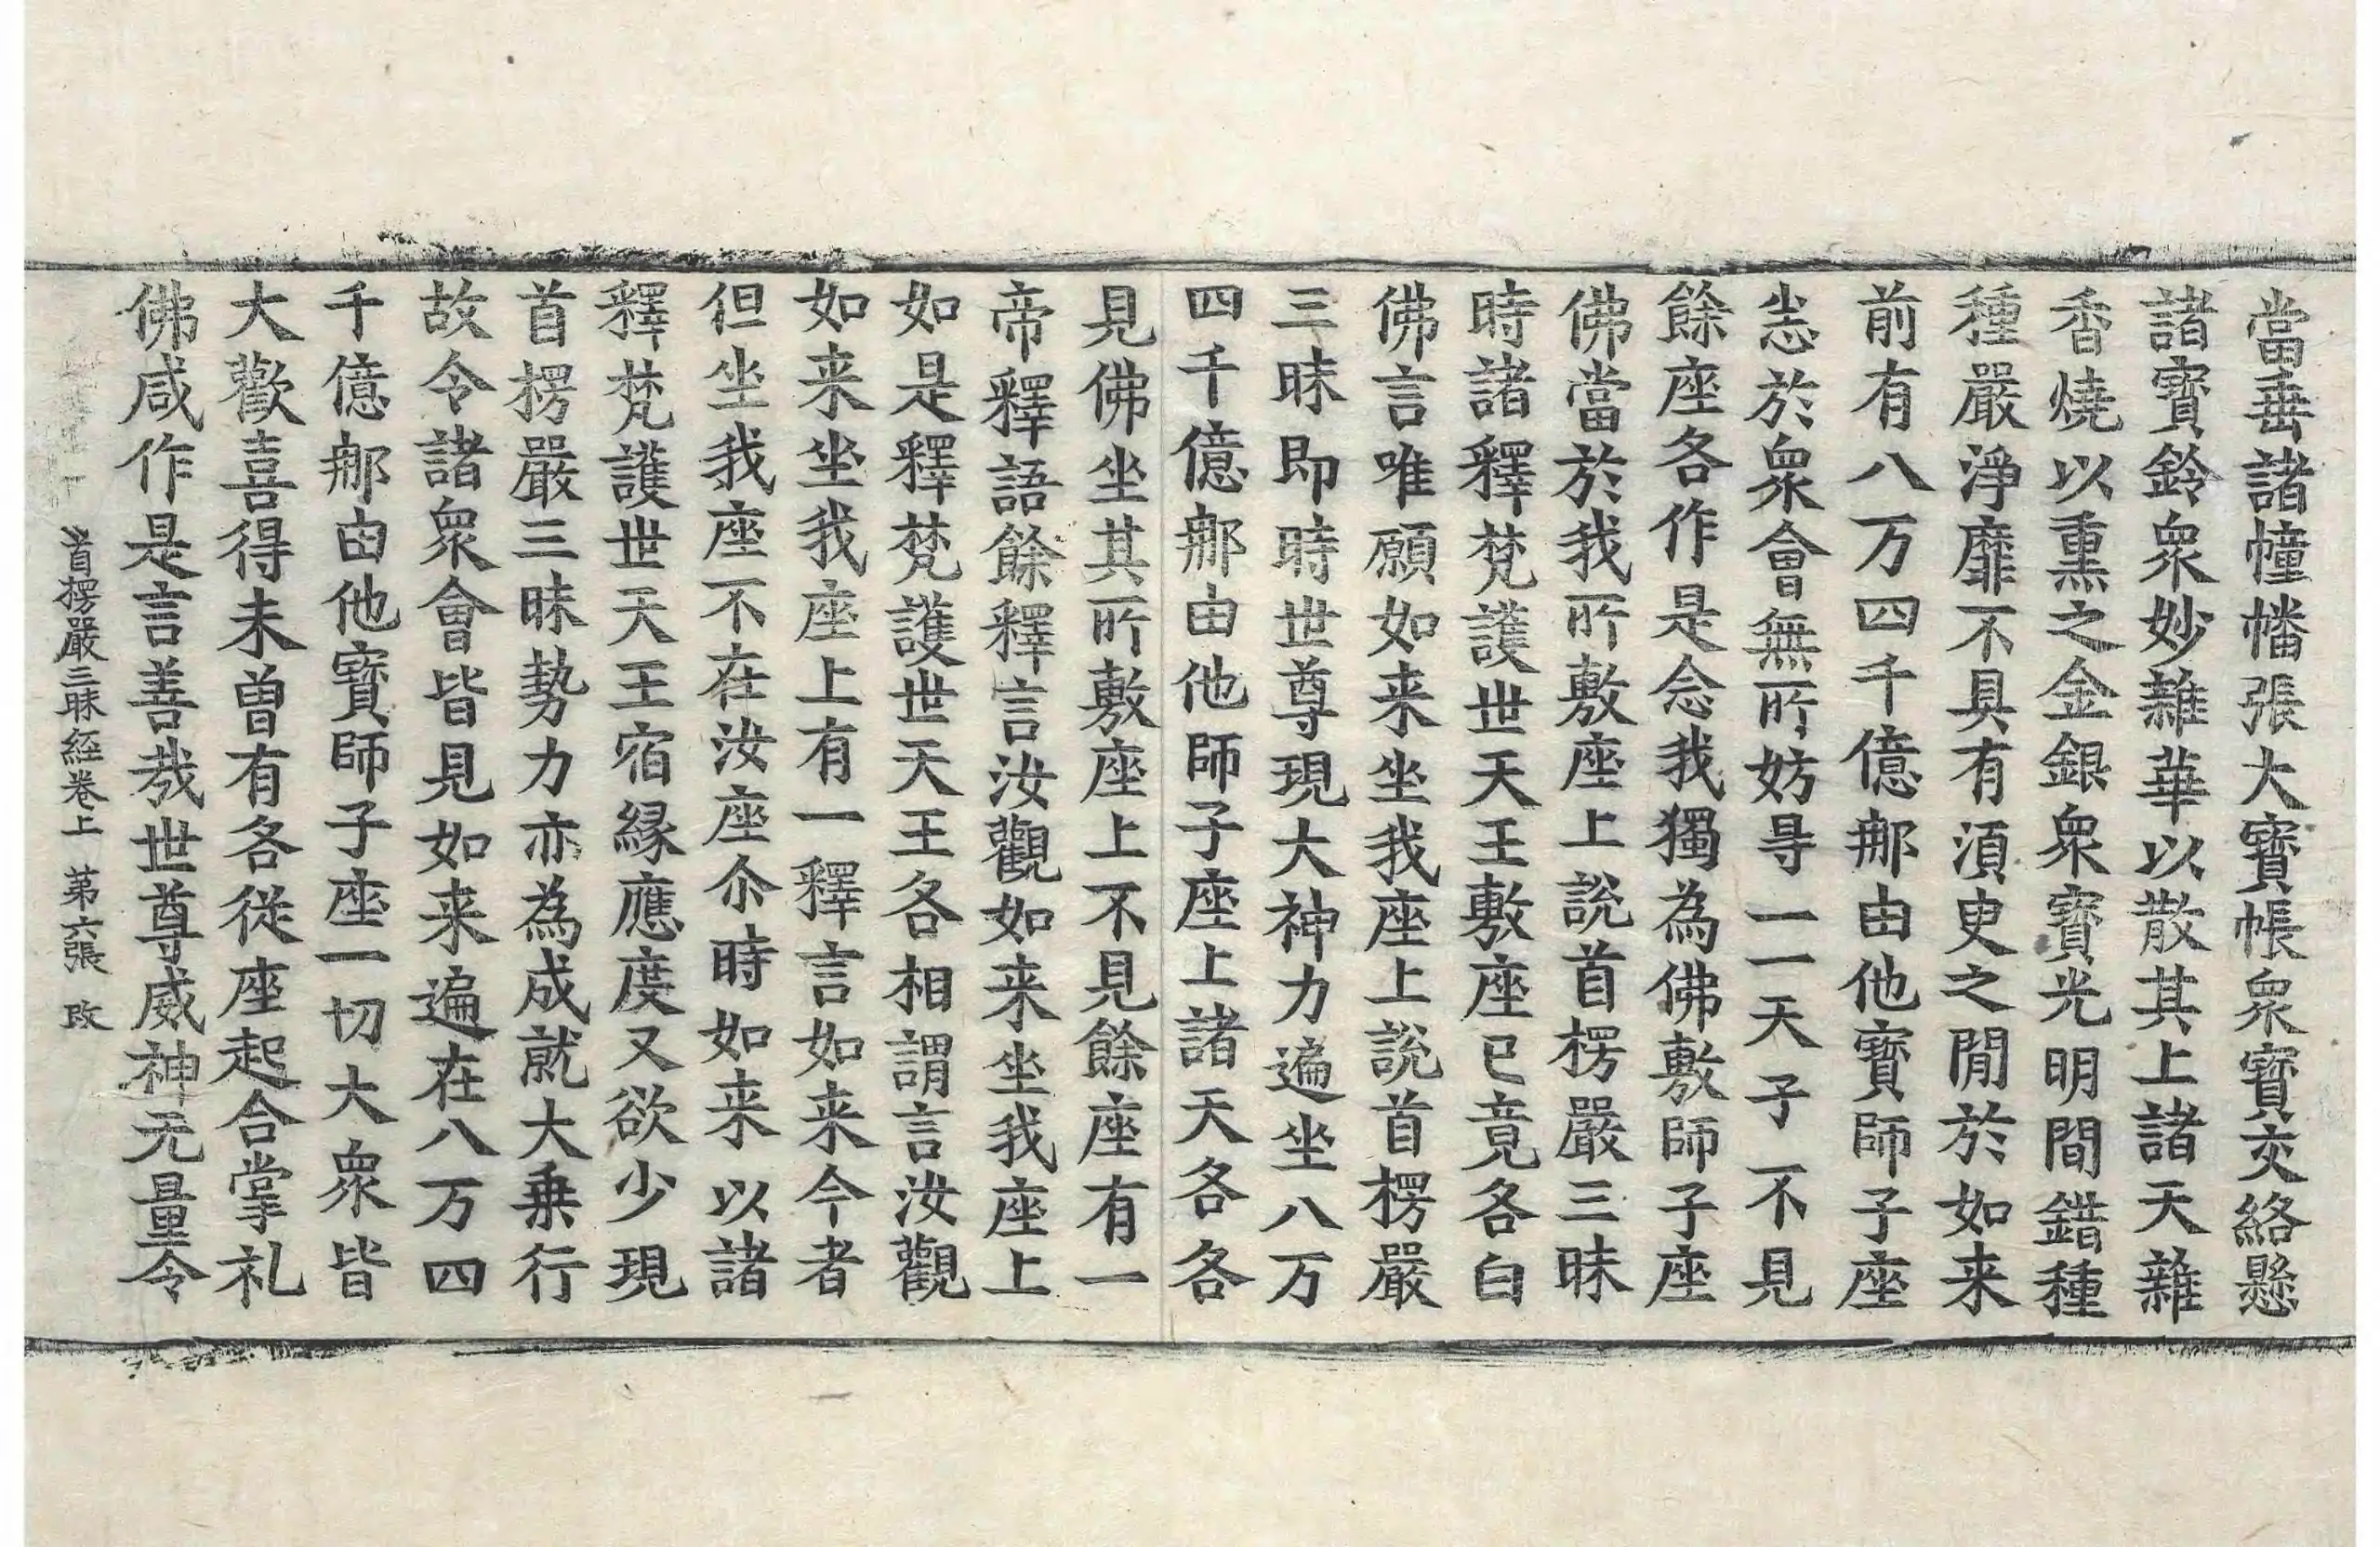 當垂諸幢幡張大寶帳衆寶交絡懸
諸寶鈴衆妙雜華以散其上諸天雜
香燒以熏之金銀衆寶光明間錯種
種嚴淨靡不具有湏臾之閒於如来
前有八万四千億那由他寶師子座
悉於衆會無所妨㝵一一天子不見
餘座各作是念我獨為佛敷師子座
佛當於我所敷座上說首楞嚴三昧
時諸釋梵護世天王敷座已竟各白
佛言唯願如来坐我座上說首楞嚴
三昧即時世尊現大神力遍坐八万
四千億那由他師子座上諸天各各
見佛坐其所敷座上不見餘座有一
帝釋語餘釋言汝觀如来坐我座上
如是釋梵護世天王各相謂言汝觀
如来坐我座上有一釋言如来今者
但坐我座不在汝座尒時如来以諸
釋梵護世天王宿緣應度又欲少現
首楞嚴三昧勢力亦為成就大乗行
故令諸衆會皆見如来遍在八万四
千億那由他寶師子座一切大衆皆
大歡喜得未曾有各從座起合掌礼
佛咸作是言善哉世尊威神无量令
首楞嚴三昧経卷上 第六張 改